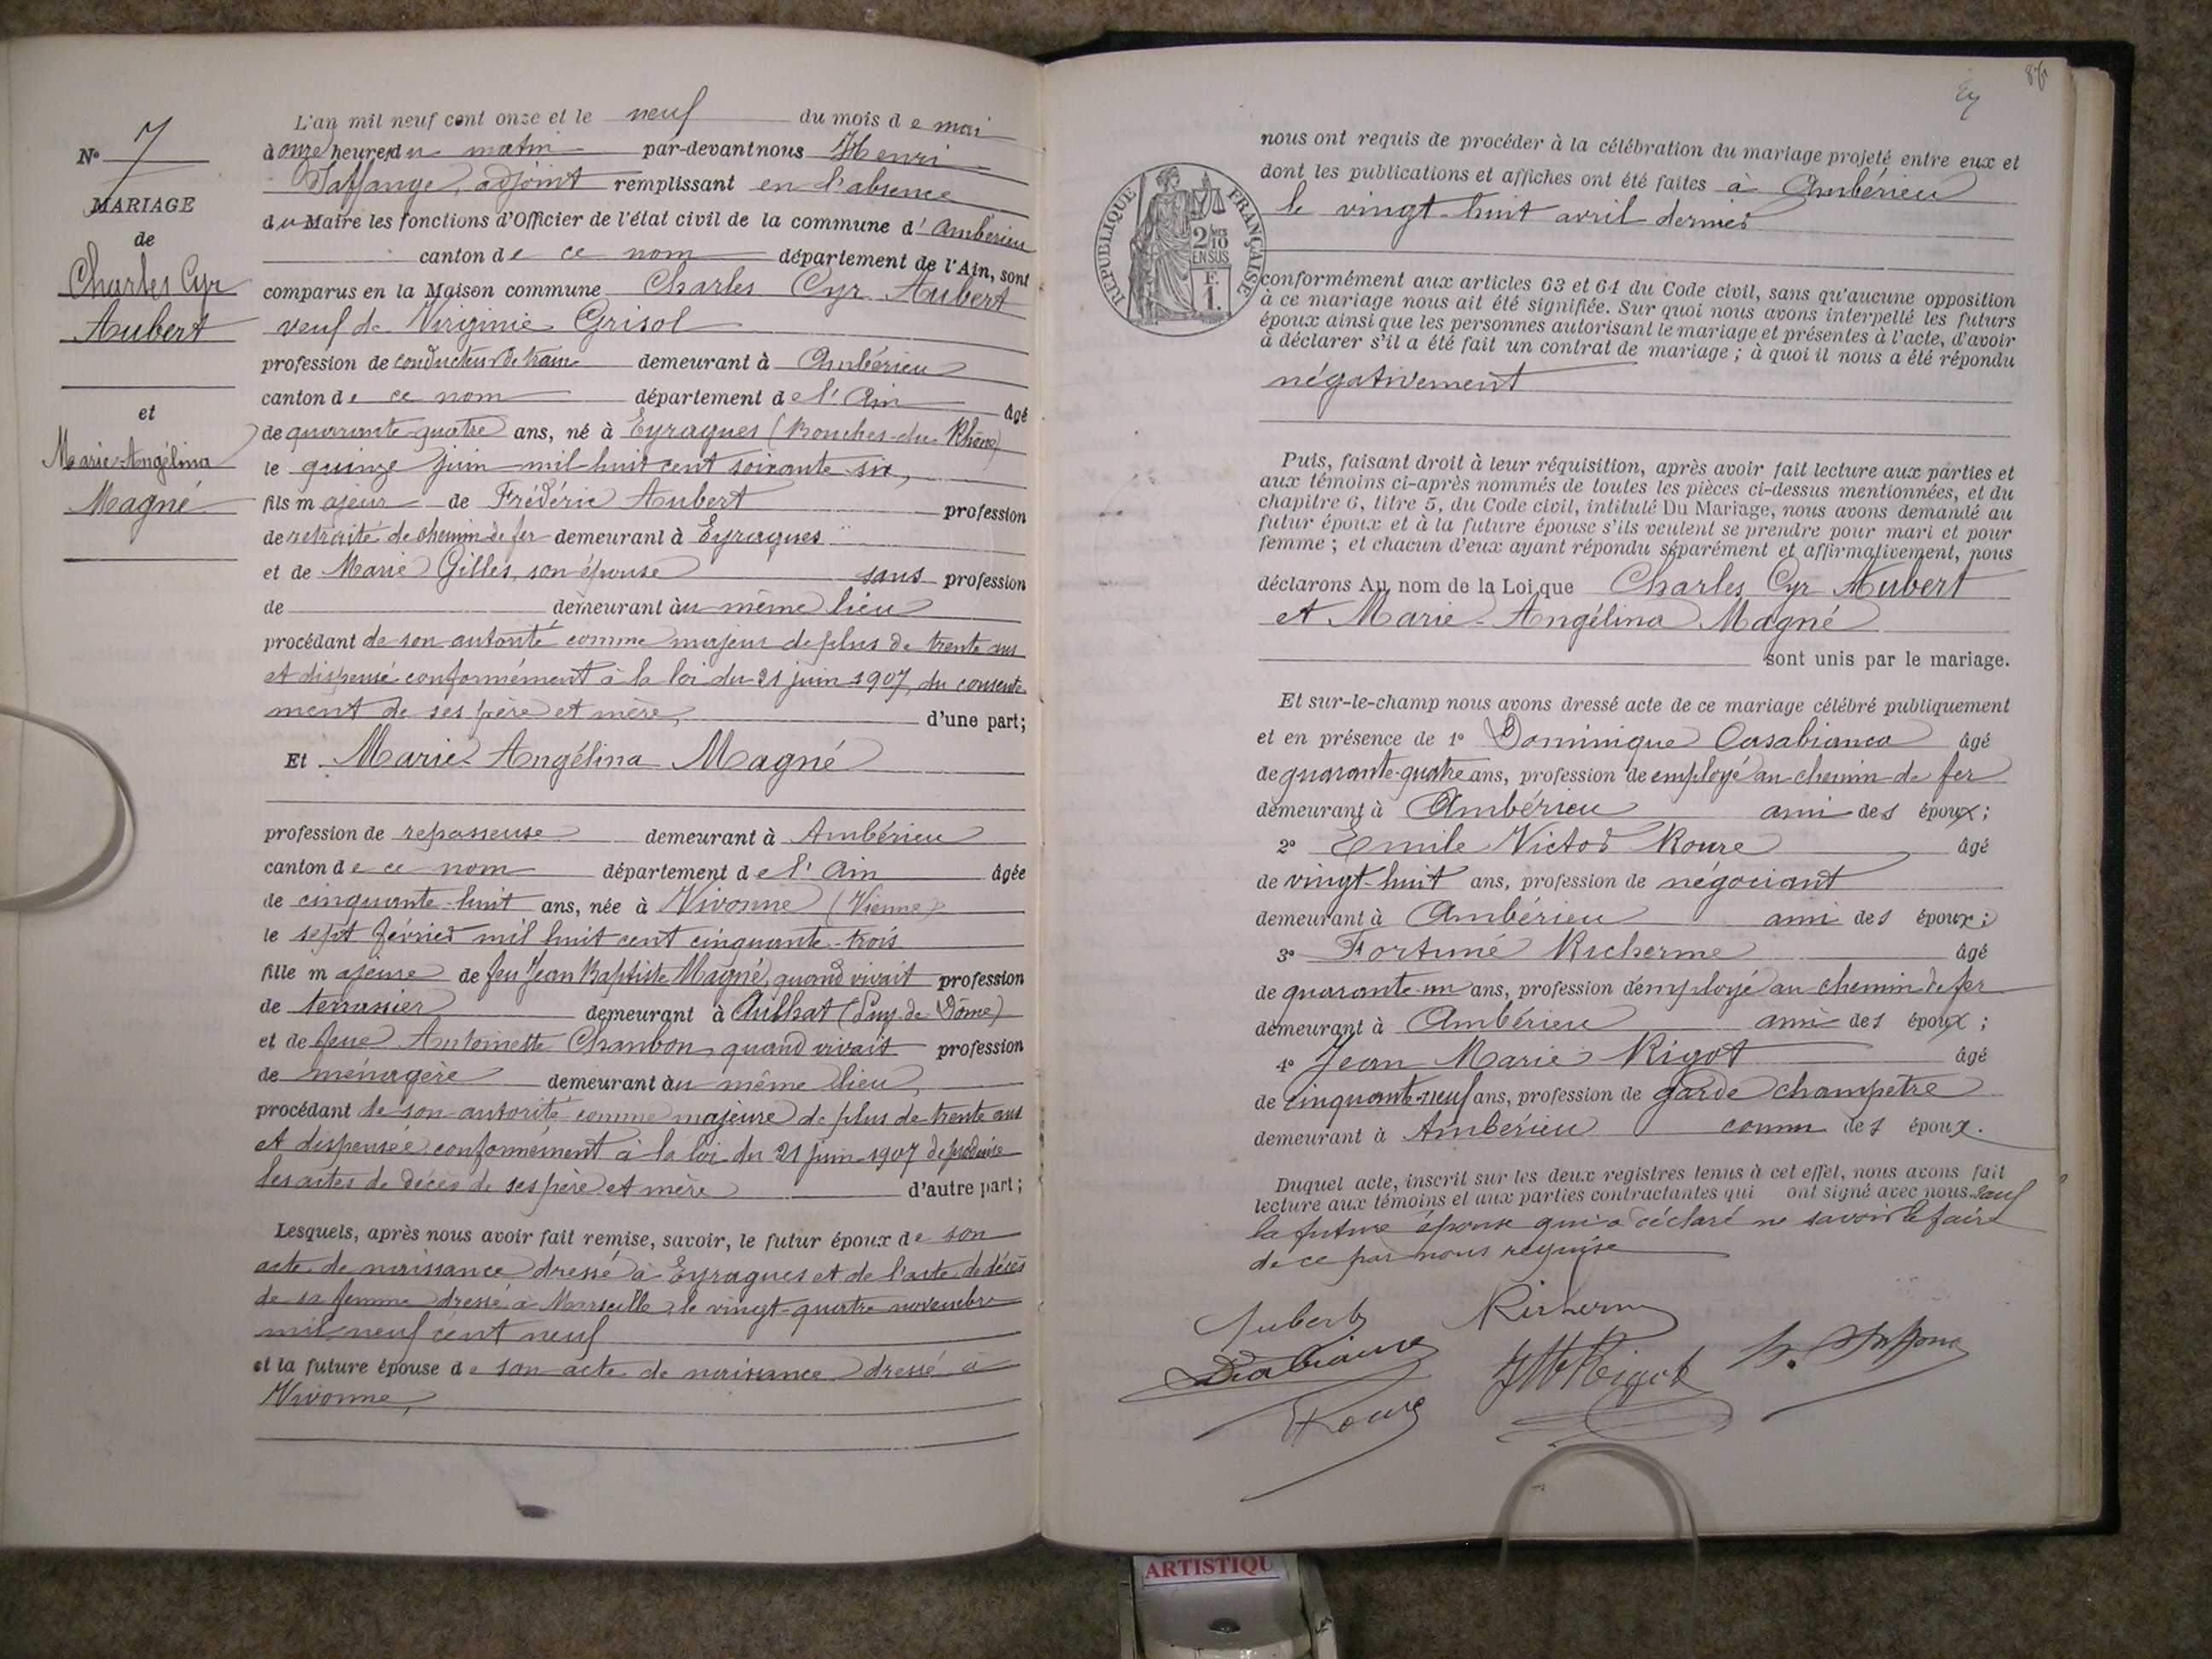 N° 7
MARIAGE
de
Charles Cyr
Aubert
et
Marie-Angélina
Magné
L'an mil neuf cent onze et le neuf du mois de mai
à onze heures du matin par-devant nous Henri
Saffange, adjoint remplissant en l'absence
du Maire les fonctions d'Officier de l'état civil de la commune d'Ambérieu
canton de ce nom département de l'Ain, sont
comparus en la Maison commune Charles Cyr Aubert
veuf de Virginie Grisol
profession de conducteur de train demeurant à Ambérieu
canton de ce nom département de l'Ain âgé
de quarante-quatre ans, né à Eyragues (Bouches-du-Rhône)
le quinze juin mil-huit cent soixante-six,
fils majeur de Frédéric Aubert profession
de retraité de chemin de fer demeurant à Eyragues
et de Marie Gilles, son épouse sans profession
de demeurant au même lieu
procédant de son autorité comme majeur de plus de trente ans
et dispensé conformément à la loi du 21 juin 1907, du consente-
ment de ses père et mère, d'une part;
Et Marie-Angélina Magné
profession de repasseuse demeurant à Ambérieu
canton de ce nom département de l'Ain âgée
de cinquante-huit ans, née à Vivonne (Vienne)
le sept février mil huit cent cinquante-trois
fille majeure de feu Jean Baptiste Magné, quand vivait profession
de terrassier demeurant à Aulhat (Puy-de-Dôme)
et de feue Antoinette Chambon, quand vivait profession
de ménagère demeurant au même lieu,
procédant de son autorité comme majeure de plus de trente ans
et dispensée conformément à la loi du 21 juin 1907 de produire
les actes de décès de ses père et mère d'autre part;
Lesquels, après nous avoir fait remise, savoir, le futur époux de son
acte de naissance dressé à Eyragues et de l'acte de décès
de sa femme dressé à Marseille, le vingt-quatre novembre
mil-neuf cent neuf
et la future épouse de son acte de naissance dressé à
Vivonne,
nous ont requis de procéder à la célébration du mariage projeté entre eux et
dont les publications et affiches ont été faites à Ambérieu
le vingt-huit avril dernier
RÉPUBLIQUE FRANÇAISE
2/10
EN SUS
F.
1.
conformément aux articles 63 et 64 du Code civil, sans qu'aucune opposition
à ce mariage nous ait été signifiée. Sur quoi nous avons interpellé les futurs
époux ainsi que les personnes autorisant le mariage et présentes à l'acte, d'avoir
à déclarer s'il a été fait un contrat de mariage; à quoi il nous a été répondu
négativement
Puis, faisant droit à leur réquisition, après avoir fait lecture aux parties et
aux témoins ci-après nommés de toutes les pièces ci-dessus mentionnées, et du
chapitre 6, titre 5, du Code civil, intitulé Du Mariage, nous avons demandé au
futur époux et à la future épouse s'ils veulent se prendre pour mari et pour
femme; et chacun d'eux ayant répondu séparément et affirmativement, nous
déclarons Au nom de la Loi que Charles Cyr Aubert
et Marie-Angélina Magné
sont unis par le mariage.
Et sur-le-champ nous avons dressé acte de ce mariage célébré publiquement
et en présence de 1° Dominique Casabianca âgé
de quarante-quatre ans, profession de employé au chemin de fer
demeurant à Ambérieu ami des époux;
2° Emile Victor Roure âgé
de vingt-huit ans, profession de négociant
demeurant à Ambérieu ami des époux;
3° Fortuné Richerme âgé
de quarante-un ans, profession d'employé au chemin de fer
demeurant à Ambérieu ami des époux;
4° Jean Marie Rigot âgé
de cinquante-neuf ans, profession de garde champetre
demeurant à Ambérieu connu des époux.
Duquel acte, inscrit sur les deux registres tenus à cet effet, nous avons fait
lecture aux témoins et aux parties contractantes qui ont signé avec nous sauf
la future épouse qui a déclaré ne savoir le faire
de ce par nous requise
Aubert Richerme
JM Rigot
Roure
ARTISTIQU